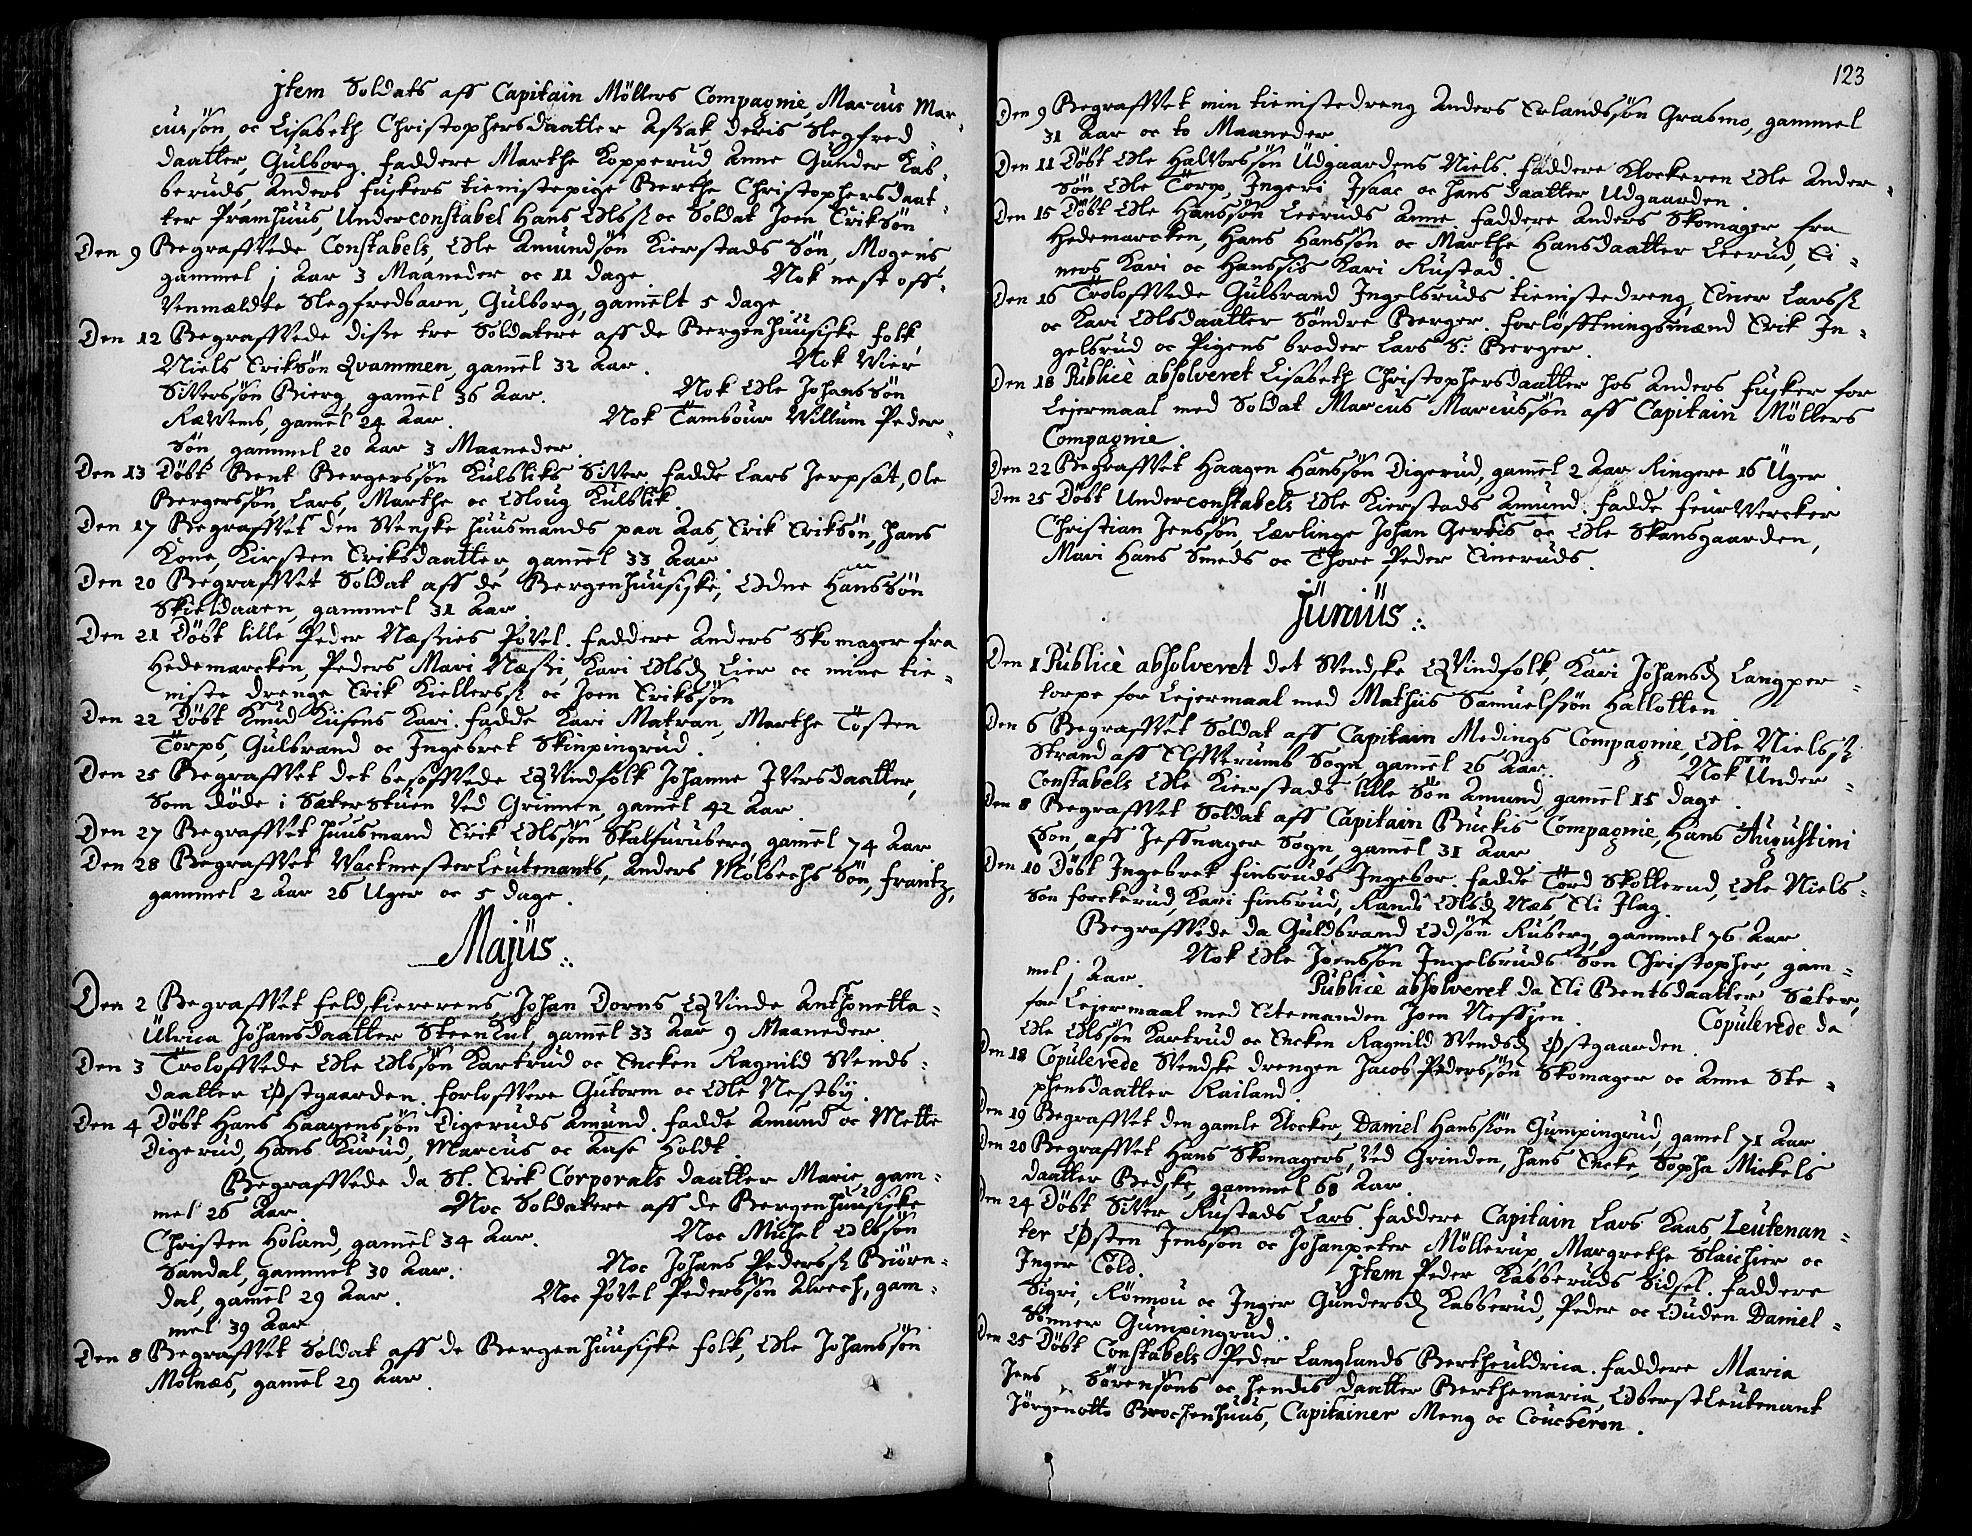 jtem Soldats aff Capitain Möllers Compagnie, Marcus Mar-
cussön, oc Lisabeth Christophersdaatter Aszak deris Slegfred
daatter, Gulborg. faddere Marthe Kopperud Anne Gunder Kas-
seruds, Anders fuskers tienistepige Berthe Christophersdaat-
ter Pramhuus, Underconstabel Hans Olss: oc Soldat Joen Eriksön
Den 9 Begraffvede Constabels, Ole Amundsön Kierstads Sön, Mogens
gammel j Aar 3 Maaneder oc 11 dage. Nok nest off-
venmældte Slegfredbarn, Gulborg, gammelt 5 dage
Den 12 Begraffvede disse tre Soldatere aff de Bergenhuusiske folk
Niels Eriksön Qvammen, gamel 32 Aar. Nok Vier
Siversön Bierg, gamel 36 Aar. Nok Ole Johanssön
Rævems, gamel 24 Aar. Nok Tambour Willum Peder-
sön gammel 20 Aar 3 Maaneder.
Den 13 Döbt Bent Bergersön Kulsliks Siver fadde Lars Jerpset, Ole
Bergersön, Lars, Marthe oc Oloug Kulslik.
Den 17 Begraffvet den Svenske huusmands paa Aas, Erik Eriksön, hans
Kone, Kirsten Eriksdaatter gamel 33 Aar.
Den 20 Begraffvet Soldat aff de Bergenhuusiske, Odne Hanssön
Skieldaaen, gammel 31 Aar.
Den 21 Döbt lille Peder Næssies Povel. faddere Anders Skomager fra
Hedemarcken, Peders Mari Næssi, Kari Olsd: Lier oc mine tie-
niste drenge Erik Kiellerss: oc Joen Erikssön
Den 22 Döbt Knud Kiisens Kari. fadde Kari Matran, Marthe Tosten
Torps, Gulbrand oc Ingebret Skinpingrud.
Den 25 Begraffvet det besoffvede Qvindfolk Johanne Iversdaatter,
som döde i Sæterstuen ved Grinnen gamel 42 Aar.
Den 27 Begraffvet huusmand Erik Olssön Skalfuruberg gamel 74 Aar
Den 28 Begraffvet Wacktmester Leutenants, Anders Mölbechs Sön, frantz,
gammel 2 Aar 26 Uger oc 5 dage.
Majus.
Den 2 Begraffvet feldskiererens, Johan Dorns Qvinde Anthonetta-
Ulrica Johansdaatter Steenkul, gamel 33 Aar 9 Maaneder.
Den 3 Troloffvede Ole Olssön Kartrud oc Encken Ragnild Svends-
daatter Østgaarden. forloffvere Gutorm oc Ole Nestby.
Den 4 Döbt Hans Haagenssön Digeruds Amund. fadde Amund oc Mette
Digerud, Hans Kurud, Marcus oc Aase Holdt
Begraffvede da Sl. Erik Corporals daatter Marie, gam-
mel 26 Aar. Noc Soldatere aff de Bergenhuusiske
Christen Holand, gamel 34 Aar. Noc Michel Olssön
Sandal, gammel 30 Aar. Noc Johans Pederss: Biörn-
dal, gamel 29 Aar. Noc Povel Pederssön Alrech, gam-
mel 39 Aar
Den 8 Begraffvet Soldat aff de Bergenhuusiske folk, Ole Johanssön
Molnæs, gamel 29 Aar.
123
Den 9 Begraffvet min tienistedreng Anders Erlandssön Grasmo, gammel
31 Aar oc to Maaneder.
Den 11 Döbt Ole Halvorssön Udgaardens Niels. faddere Klockeren Ole Ander-
sön Ole Torp, Ingeri Isaac oc hans Daatter Udgaarden.
Den 15 Döbt Ole Hanssön Leeruds Anne. faddere Anders Skomager fra
Hedemarcken, Hans Hanssön oc Marthe Hansdaatter Leerud, Ei-
ners Kari oc Hanssis Kari Rustad.
Den 16 Troloffvede Gulbrand Ingelsruds tienistedreng Einer Larss:
oc Kari Olsdaatter Söndre Berger. forlöfftningsmænd Erik In-
gelsrud oc Pigens broder Lars S: Berger.
Den 18 Publicè absolveret Lisabeth Christophersdaatter hos Anders fusker for
Lejermaal med Soldat Marcus Marcussön aff Capitain Möllers
Compagnie.
Den 22 Begraffvet Haagen Hanssön Digerud, gamel 2 Aar Ringere 16 Uger.
Den 25 Döbt Underconstabels Ole Kierstads Amund. fadde feurvercker
Christian Jenssön, Lærlinge Johan Gerkis oc Ole Skansgaarden,
Mari Hans Smeds oc Thore Peder Eineruds.
Junius.
Den 1 Publicè absolveret det Svendske Qvindfolk, Kari Johansd: Langper-
torpe for Lejermaal med Mathiis Samuelssön Hallotten
Den 6 Begraffvet Soldat aff Capitain Medings Compagnie, Ole Nielss:
Strand aff Elfverums Sogn gamel 26 Aar. Nok Under-
Constabels Ole Kierstads lille Sön Amund, gamel 15 dage.
Den 8 Begraffvet Soldat aff Capitain Buckis Compagnie, Hans Augustini
Sön, aff Jessnager Sogn, gamel 31 Aar
Den 10 Döbt Ingebret finsruds Ingebor. fadde Tord Skotterud, Ole Niels-
sön forckerud, Kari finsrud, Randi Olsd: Næs Eli Flag.
Begraffvede da Guldbrand Odsön Ruberg, gammel 76 Aar.
Nok Ole Joenssön Ingelsruds Sön Christopher, gam-
mel j Aar. Publicè absolveret da Eli Bentsdaatter Sæter,
for Lejermaal med Ectemanden Joen Nessjen. Copulerede da
Ole Olssön Kartrud oc Encken Ragnild Svendsd: Østgaarden.
Den 18 Copulerede Svendske drengen Jacob Pederssön Skomager oc Anne Ste-
phensdaatter Railand.
Den 19 Begraffvet den gamle Klocker, Daniel Hanssön Gumpingrud, gamel 71 Aar
Den 20 Begraffvet Hans Skomagers, ved Grinden, hans Encke, Sopha Mickels
daatter Bedske, gammel 68 Aar.
Den 24 Döbt Siver Rustads Lars. faddere Capitain Lars Kaas, Leutenan-
ter Østen Jenssön oc Johanpeter Möllerup, Margrethe Slaichier oc
Inger Cold. jtem Peder Kasseruds Sidsel. faddere
Sigri, Rönnou oc Inger Gundersd: Kasserud, Peder oc Ouden Daniel-
Sönner Gumpingrud.
Den 25 Döbt Constabels Peder Langlands Bertheuldrica. faddere Maria
Jens Sörensöns oc hendis daatter Berthemaria, Oberstleutenant
Jörgenotto Brochenhuus, Capitainer Meng oc Coucheron.